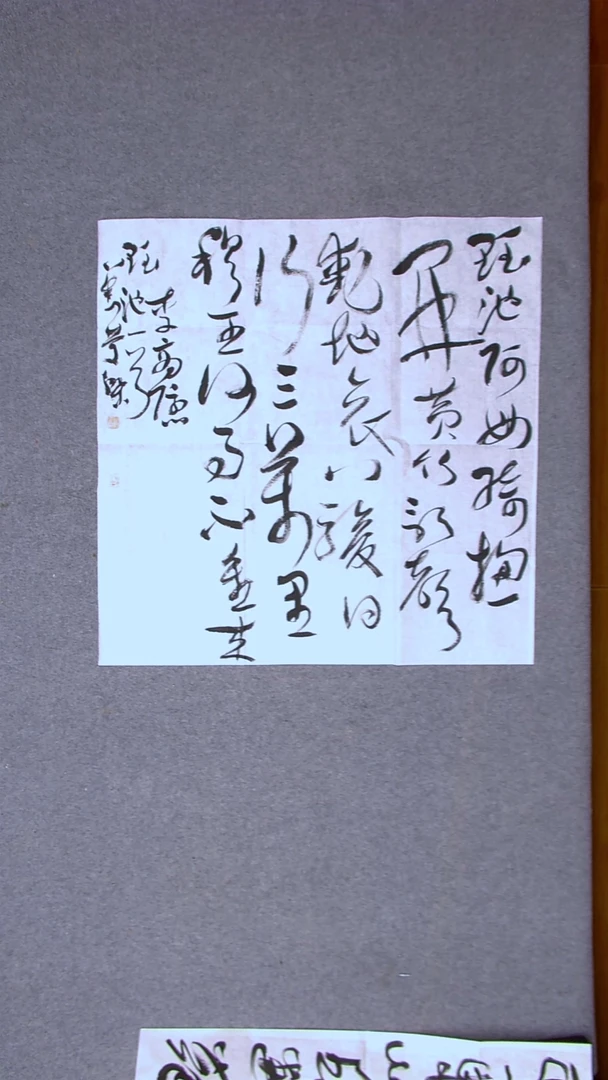 瑶池阿母綺窗
開黄竹歌聲
動地哀八駿日
行三萬里
穆王何事不重来
李商隱
瑶池一首